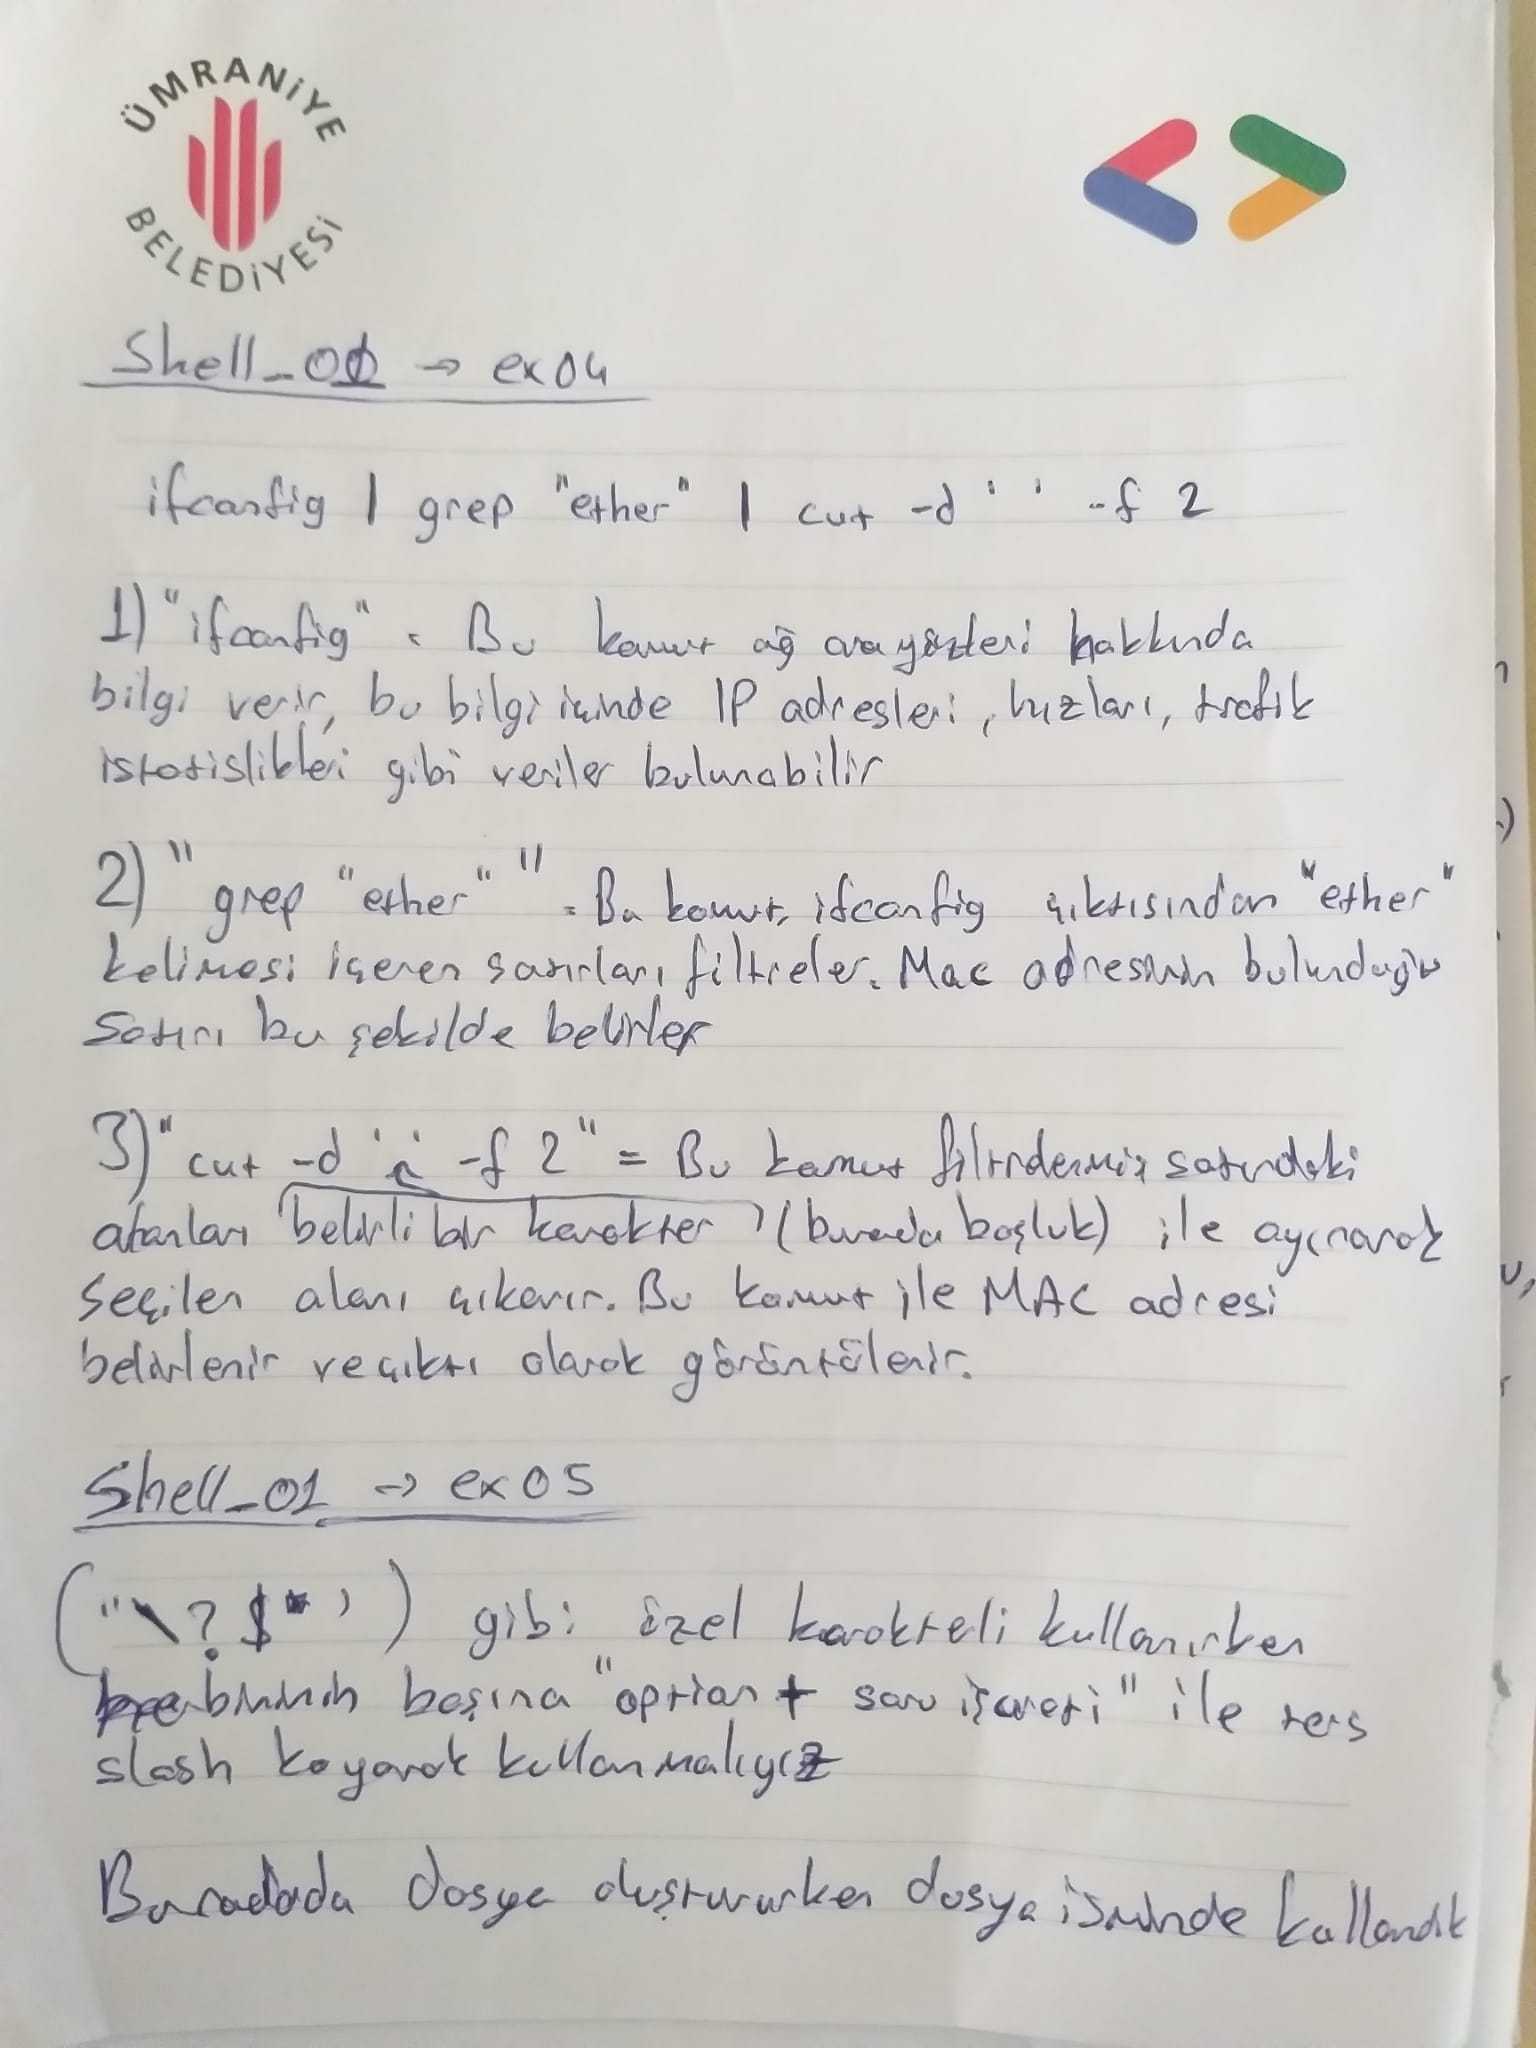 ÜMRANİYE
BELEDİYESİ
Shell_01 → ex04
ifconfig | grep "ether" | cut -d ' ' -f 2
1) "ifconfig" = Bu komut ağ arayüzleri hakkında
bilgi verir, bu bilgi içinde IP adresleri, hızları, trafik
istatislikleri gibi veriler bulunabilir
2) "grep "ether" " = Bu komut, ifconfig çıktısından "ether"
kelimesi içeren satırları filtreler. Mac adresinin bulunduğu
satırı bu şekilde belirler
3) "cut -d ' ' -f 2" = Bu komut satırdaki
alanları belirli bir karakter (burada boşluk) ile ayırarak
seçilen alanı çıkarır. Bu komut ile MAC adresi
belirlenir ve çıktı olarak görüntülenir.
Shell_01 → ex05
("\?$*') gibi özel karakteli kullanırken
birinin başına "option + soru işareti" ile ters
slash koyarak kullanmalıyız
Buradada dosya oluştururken dosya isminde kullandık